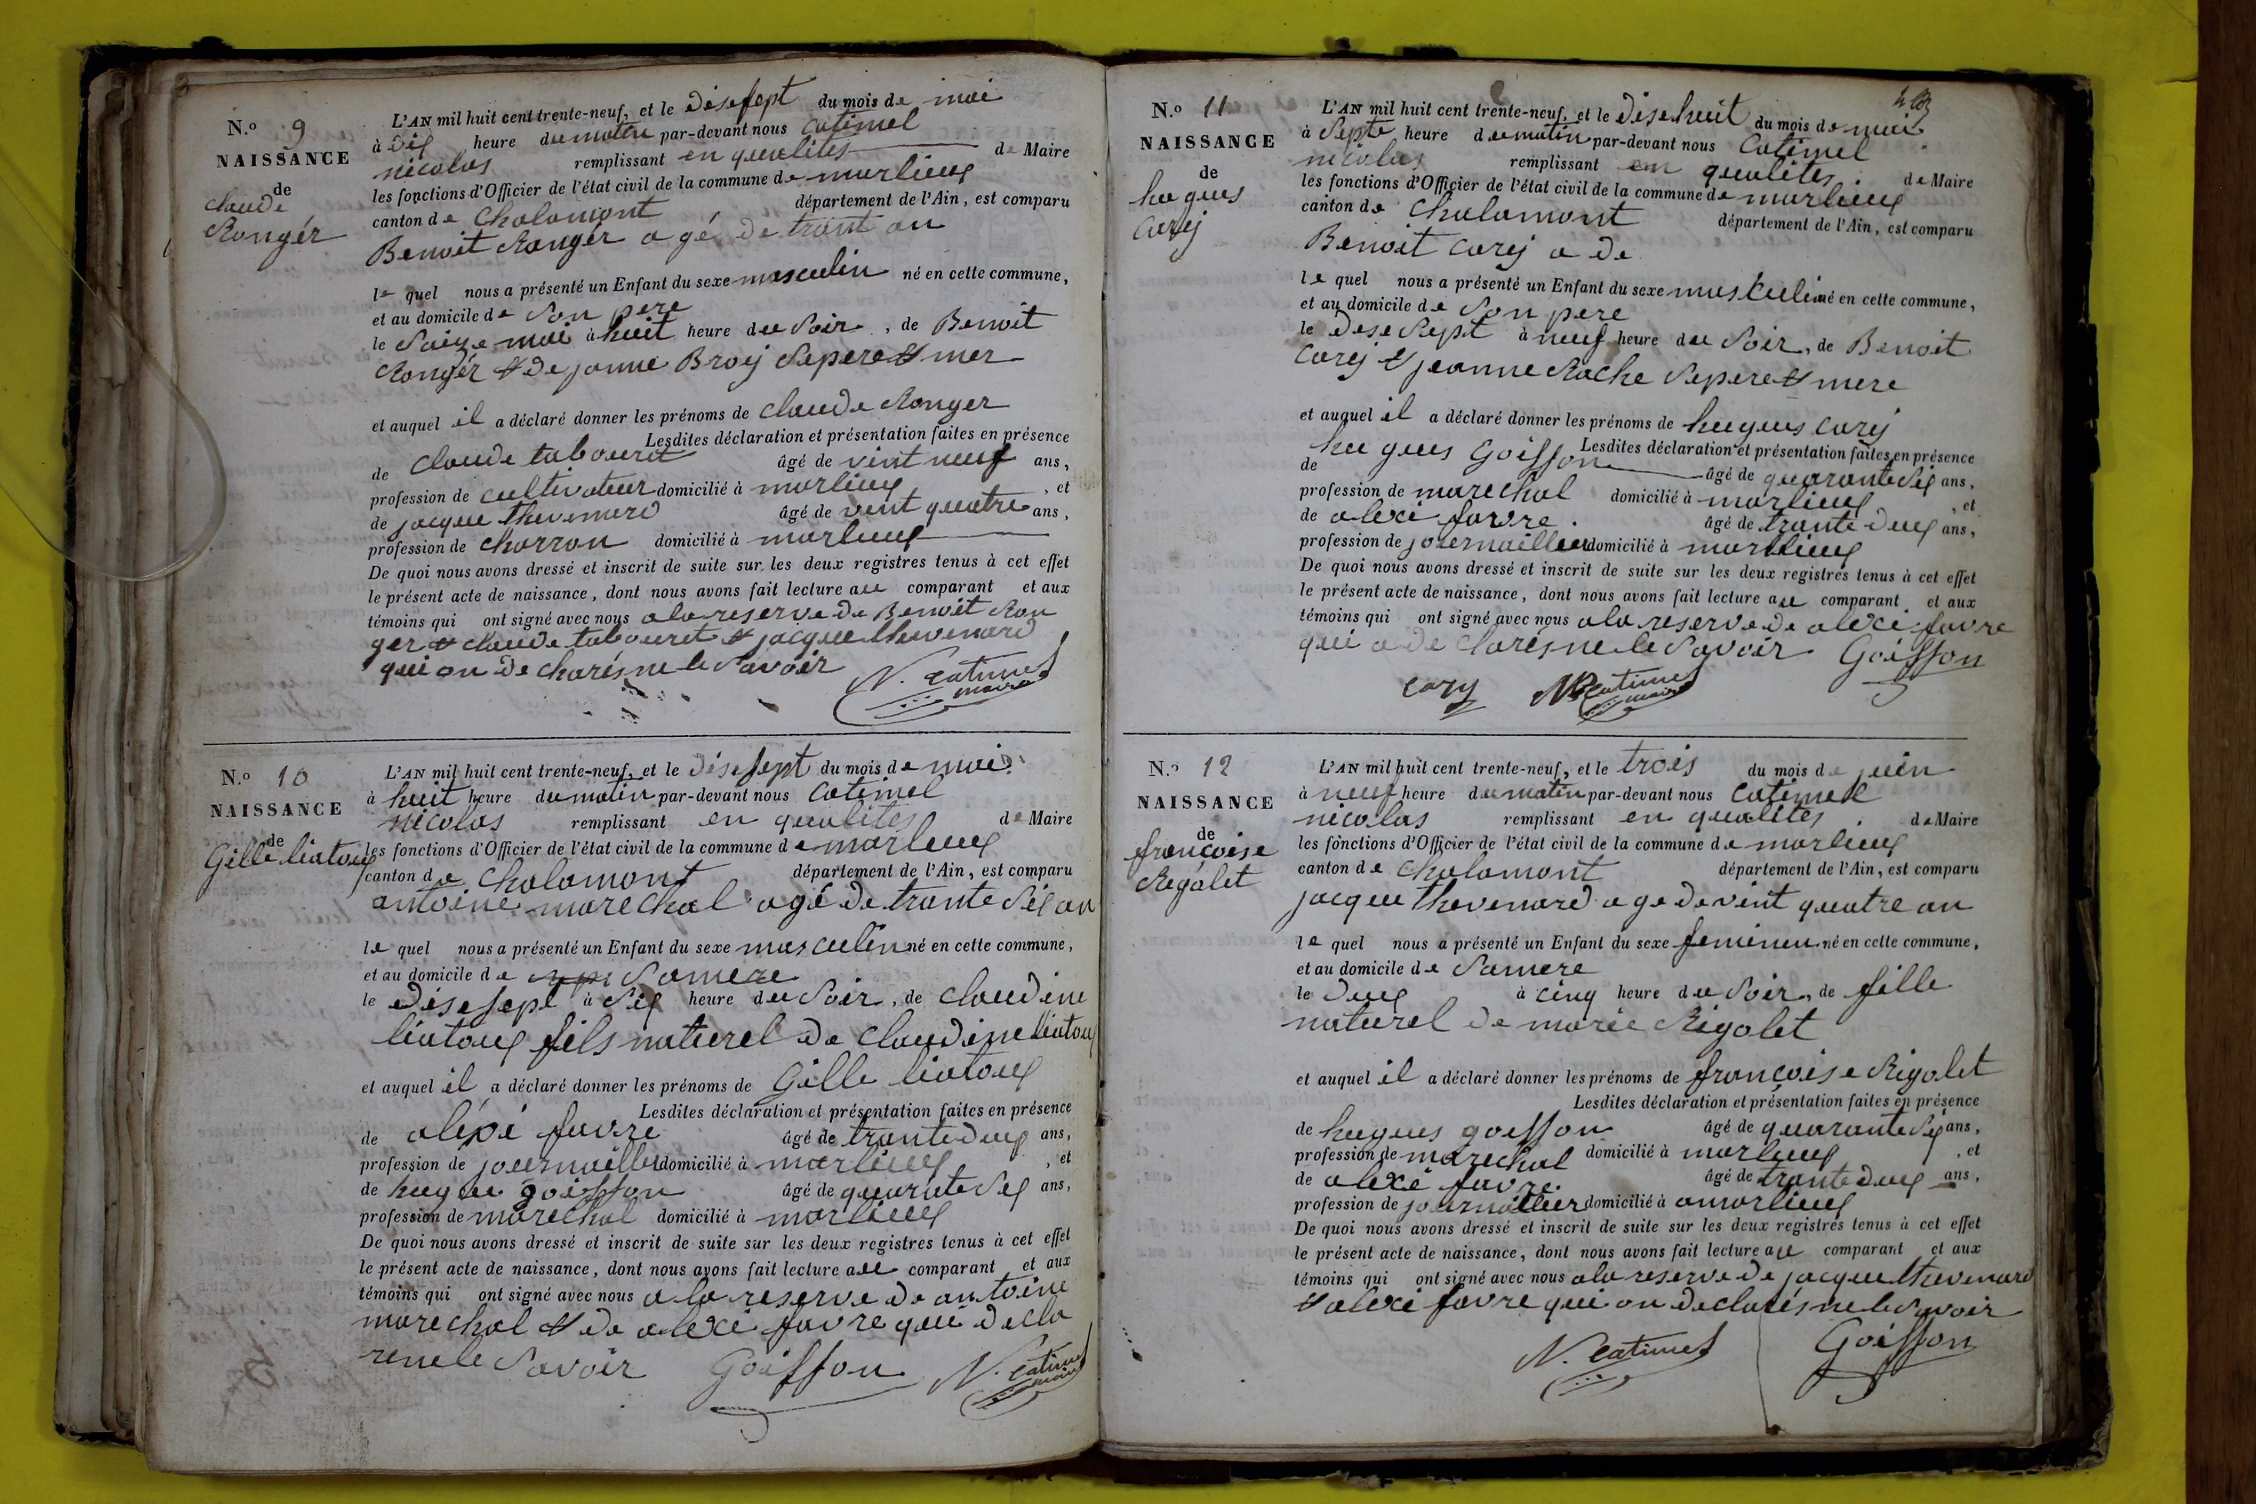 N.º 9
NAISSANCE
de
claude
Rongér
L'AN mil huit cent trente-neuf, et le disesept du mois de mai
à dix heure du matin par-devant nous Catimel
nicolas remplissant en qualites de Maire
les fonctions d'Officier de l'état civil de la commune de marlieux
canton de Chalamont département de l'Ain, est comparu
Benoit Rongér agé de trant an
le quel nous a présenté un Enfant du sexe masculin né en cette commune,
et au domicile de Son pere
le Saize mai à huit heure du Soir, de Benoit
Rongér et de jeanne Broij Sepere et mer
et auquel il a déclaré donner les prénoms de claude Ronger
Lesdites déclaration et présentation faites en présence
de claude tabouret âgé de vint neuf ans,
profession de cultivateur domicilié à marlieux, et
de jacque thevenard âgé de vent quatre ans,
profession de charron domicilié à marlieux
De quoi nous avons dressé et inscrit de suite sur les deux registres tenus à cet effet
le présent acte de naissance, dont nous avons fait lecture au comparant et aux
témoins qui ont signé avec nous ala reserve de Benoit Ron
ger et claude tabouret et jacque thevenard
qui on de charés ne le Savoir
N. Catimel
maire
N.º 10
NAISSANCE
de
Gille liatoux
L'AN mil huit cent trente-neuf, et le disesept du mois de mai
à huit heure du matin par-devant nous Catimel
nicolas remplissant en qualites de Maire
les fonctions d'Officier de l'état civil de la commune de marlieux
canton de Chalamont département de l'Ain, est comparu
antoine marechal agé de trante Six an
le quel nous a présenté un Enfant du sexe masculin né en cette commune,
et au domicile de Samere
le disesept à Six heure du Soir, de claudine
liatoux fils naturel de claudine liatoux
et auquel il a déclaré donner les prénoms de Gille liatoux
Lesdites déclaration et présentation faites en présence
de alexi favre âgé de trante deux ans,
profession de journailler domicilié à marlieux, et
de hugue goiffon âgé de quarante Six ans,
profession de marechal domicilié à marlieux
De quoi nous avons dressé et inscrit de suite sur les deux registres tenus à cet effet
le présent acte de naissance, dont nous avons fait lecture au comparant et aux
témoins qui ont signé avec nous ala reserve de antoine
marechal et de alexi favre qui decla
rene le Savoir Goiffon N. Catimel
maire
N.º 11
NAISSANCE
de
hugues
Carij
L'AN mil huit cent trente-neuf, et le disehuit du mois de mai
à Septe heure du matin par-devant nous Catimel
nicolas remplissant en qualites de Maire
les fonctions d'Officier de l'état civil de la commune de marlieux
canton de Chalamont département de l'Ain, est comparu
Benoit carij a de
le quel nous a présenté un Enfant du sexe musculin né en cette commune,
et au domicile de Son pere
le deseSept à neuf heure du Soir, de Benoit
Carij et jeanne Rache Sepere et mere
et auquel il a déclaré donner les prénoms de hugues carij
Lesdites déclaration et présentation faites en présence
de hugues Goiffon âgé de quarante Six ans,
profession de marechal domicilié à marlieux, et
de alexi favre. âgé de trante deux ans,
profession de journaillier domicilié à marlieux
De quoi nous avons dressé et inscrit de suite sur les deux registres tenus à cet effet
le présent acte de naissance, dont nous avons fait lecture au comparant et aux
témoins qui ont signé avec nous ala reserve de alexi favre
qui a de clarés ne le Savoir Goiffon
cary N Catimel
maire
N.º 12
NAISSANCE
de
francoise
Rigolet
L'AN mil huit cent trente-neuf, et le trois du mois de juin
à neuf heure du matin par-devant nous Catimel
nicolas remplissant en qualites de Maire
les fonctions d'Officier de l'état civil de la commune de marlieux
canton de Chalamont département de l'Ain, est comparu
jacque thevenard age de vint quatre an
le quel nous a présenté un Enfant du sexe feminin né en cette commune,
et au domicile de Samere
le deux à cinq heure du Soir, de fille
naturel de marie Rigolet
et auquel il a déclaré donner les prénoms de francoise Rigolet
Lesdites déclaration et présentation faites en présence
de hugues goiffon âgé de quarante Six ans,
profession de marechal domicilié à marlieux, et
de alexi favre. âgé de trante deux ans,
profession de journaillier domicilié à amarlieux
De quoi nous avons dressé et inscrit de suite sur les deux registres tenus à cet effet
le présent acte de naissance, dont nous avons fait lecture au comparant et aux
témoins qui ont signé avec nous ala reserve de jacque thevenard
et alexi favre qui on declarés ne le Savoir
N. Catimel Goiffon